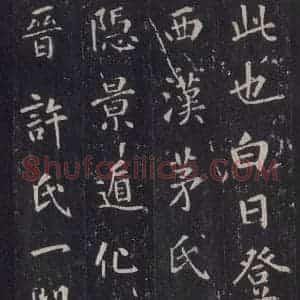 此也白日登
西漢茅氏
隠景遁化
晉許氏一門
Shufaziliao.COM